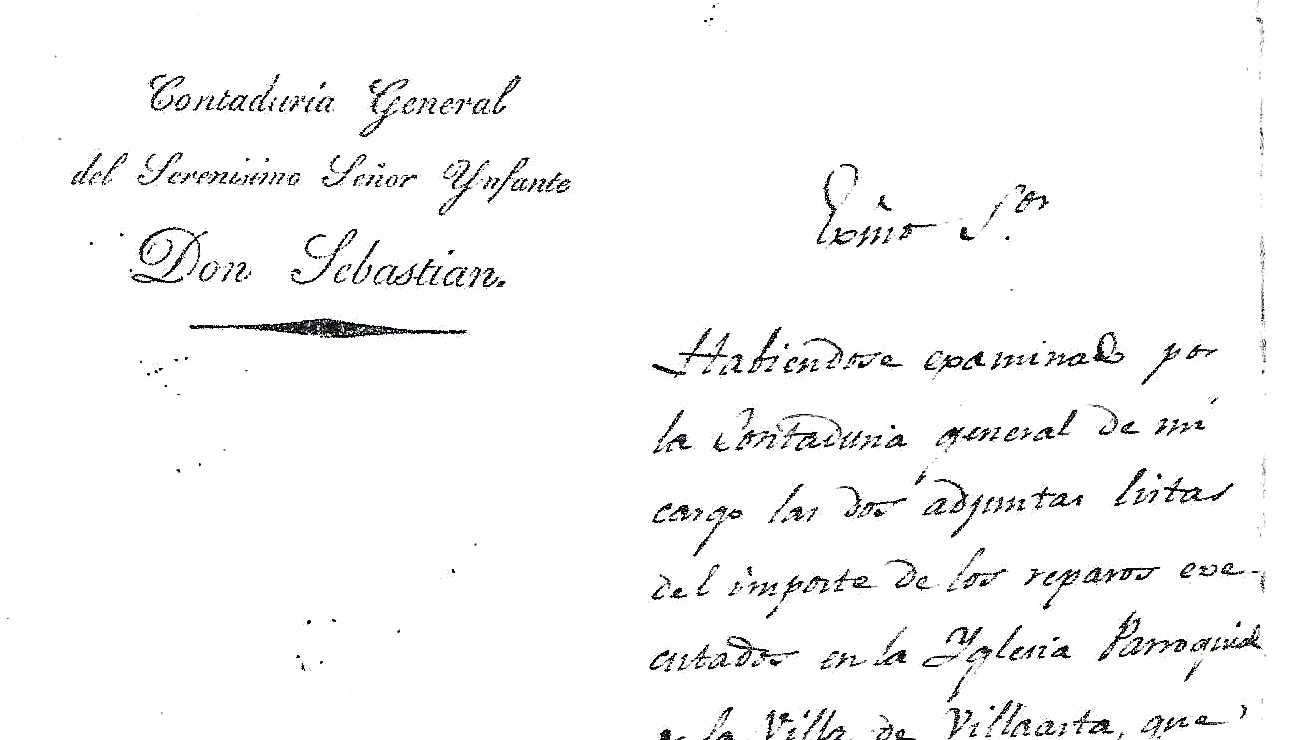 Contaduria General
del Serenisimo Señor Ynfante
Don Sebastian.
Exmo Sor
Habiendose examinado por
la Contaduria general de mi
cargo las dos adjuntas listas
del importe de los reparos exe-
cutados en la Yglesia Parroquial
de la Villa de Villaarta, que